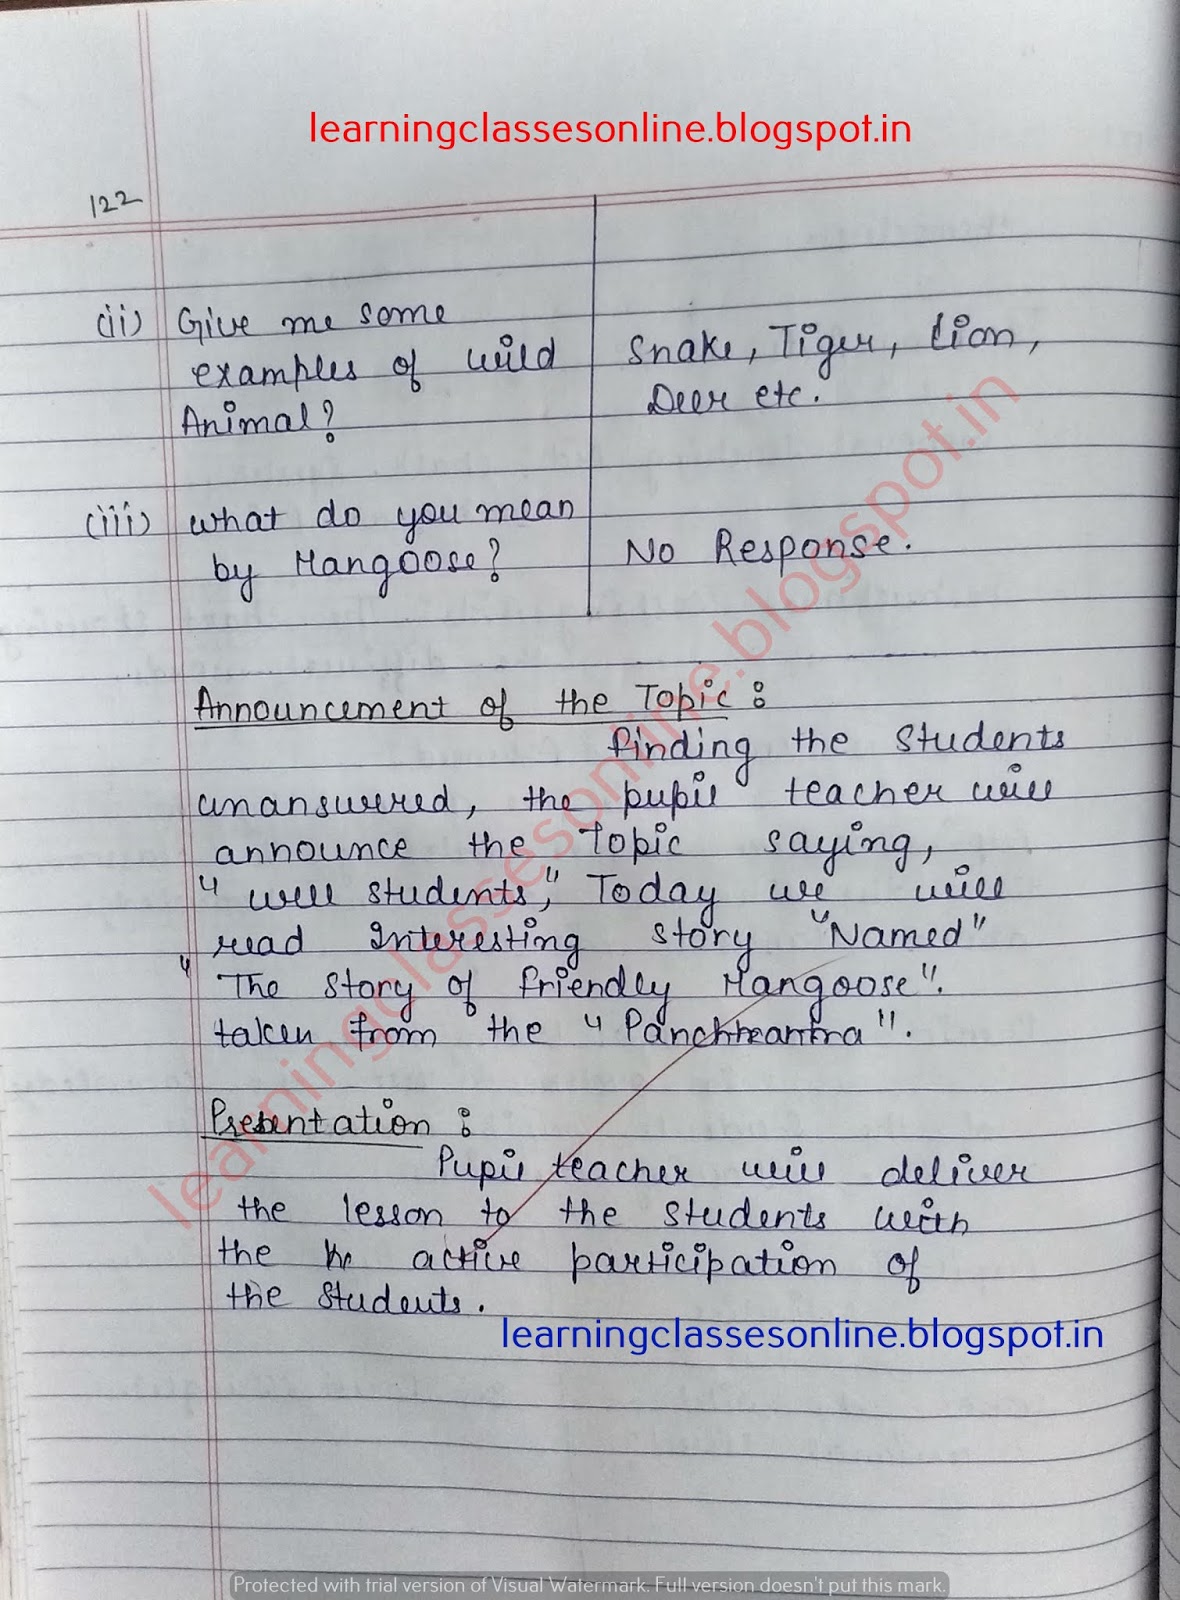 learningclassesonline.blogspot.in
122
(ii) Give me some
examples of wild
Animal?
Snake, Tiger, Lion,
Deer etc.
(iii) What do you mean
by Mangoose?
No Response.
Announcement of the Topic :
Finding the students
unanswered, the pupil teacher will
announce the Topic saying,
" well students," Today we will
read Interesting story "Named"
" The story of friendly Mangoose".
taken from the "Panchtantra".
Presentation :
Pupil teacher will deliver
the lesson to the students with
the active participation of
the students.
learningclassesonline.blogspot.in
learningclassesonline.blogspot.in
Protected with trial version of Visual Watermark. Full version doesn't put this mark.